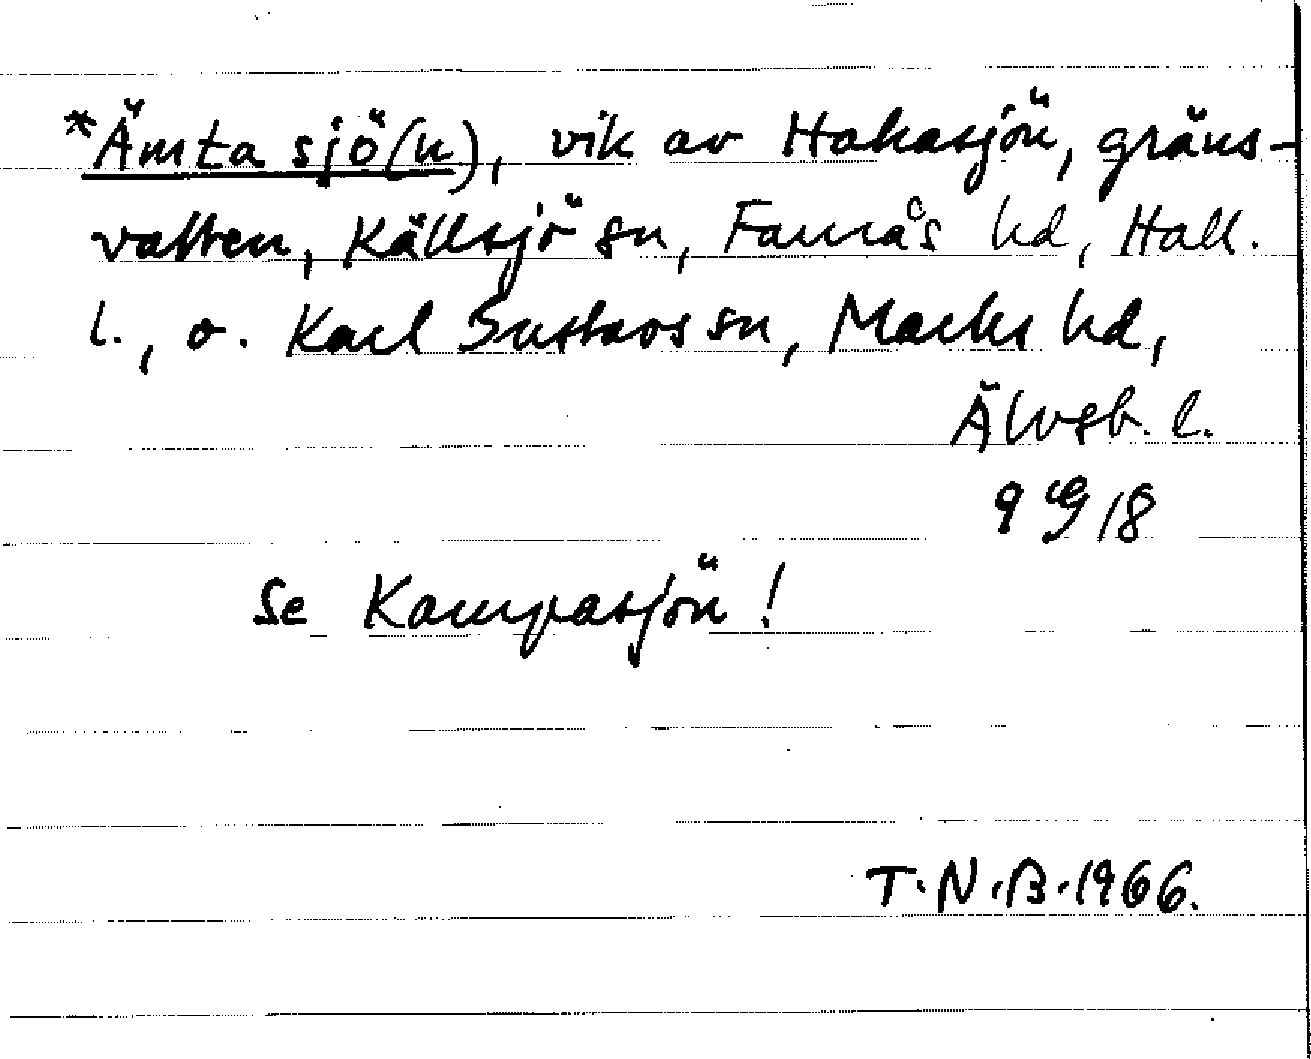 *Ämta sjö(n), vik av Hakasjön, gräns-
vatten, Källsjö sn, Faurås hd, Hall.
l., o. Karl Gustavs sn, Marks hd,
Älvsb. l.
Se Kampasjön!
T.N.B. 1966.